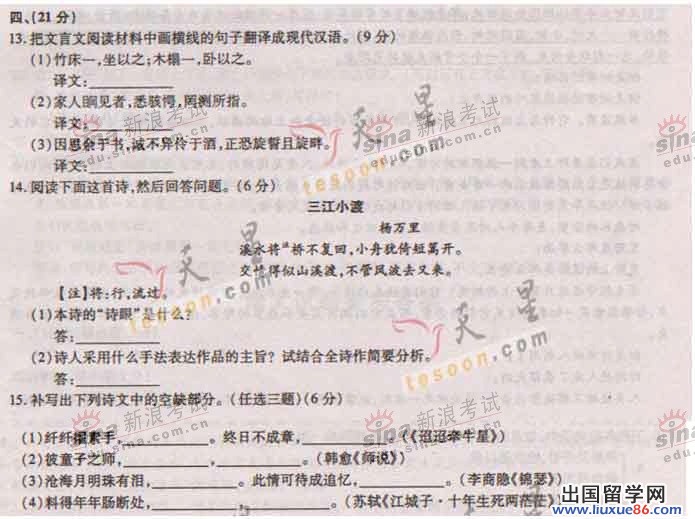 四、(21分)
13.把文言文阅读材料中画横线的句子翻译成现代汉语。(9分)
(1)竹床一,坐以之;木榻一,卧以之。
译文:
(2)家人瞷见者,悉骇愕,罔测所指。
译文:
(3)因思余于书,诚不异伶于酒,正恐旋誓且旋畔。
译文:
14.阅读下面这首诗,然后回答问题。(6分)
三江小渡
杨万里
溪水将桥不复回,小舟犹倚短篙开。
交情得似山溪渡,不管风波去又来。
【注】将:行,流过。
(1)本诗的“诗眼”是什么?
答:
(2)诗人采用什么手法表达作品的主旨?试结合全诗作简要分析。
答:
15.补写出下列诗文中的空缺部分。(任选三题)(6分)
(1)纤纤擢素手,____。终日不成章,____。(《迢迢牵牛星》)
(2)彼童子之师,____,____。(韩愈《师说》)
(3)沧海月明珠有泪,____。此情可待成追忆,____。(李商隐《锦瑟》)
(4)料得年年肠断处,____,____。(苏轼《江城子·十年生死两茫茫》)
天星
tesoon.com
sina新浪考试
出国留学网
www.liuxue86.com